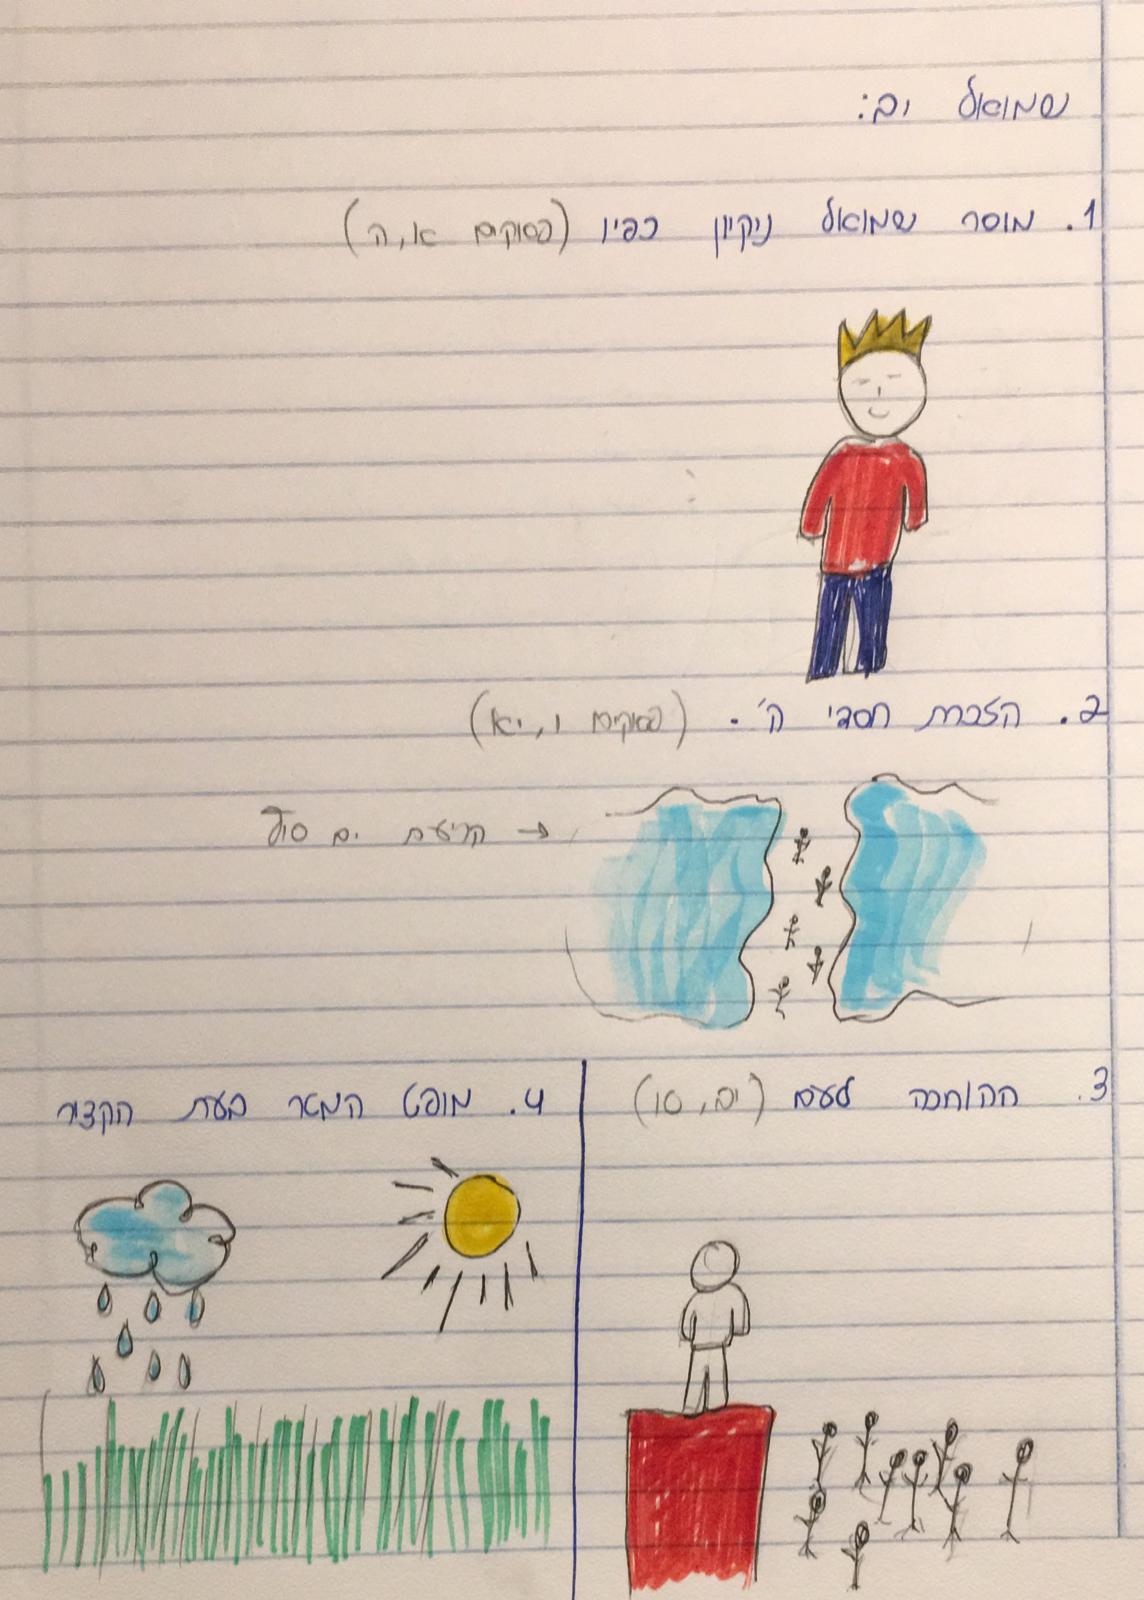 שמואל יב:
1. מוסר שמואל ניקיון כפיו (פסוקים א,ה)
2. הזכרת חסדי ה'. (פסוקים ו,יא)
קריעת ים סוף
3. ההוחכה לעם (יב, טו)
4. מופט המטר בעת הקציר